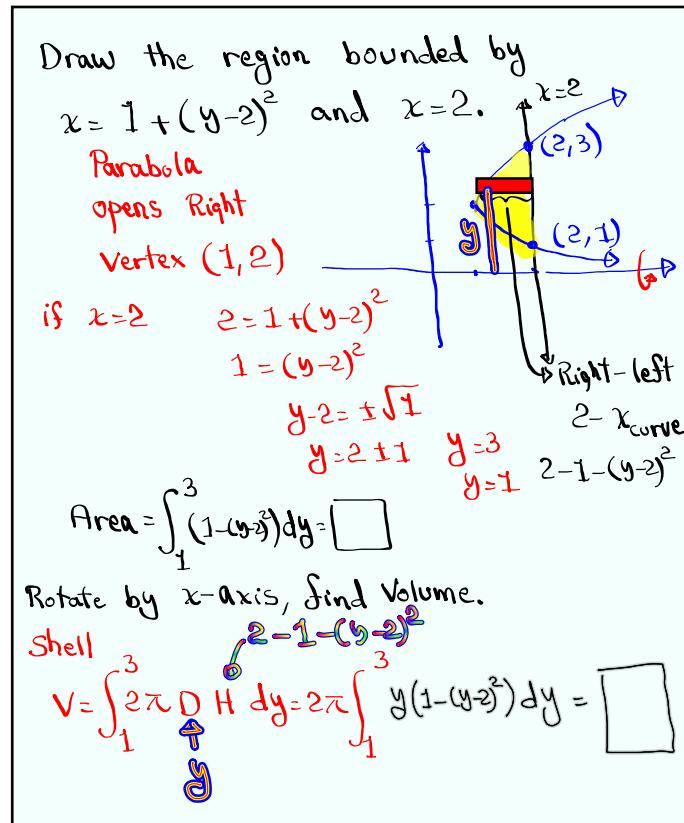 Draw the region bounded by
x = 1 + (y-2)² and x=2.
x=2
Parabola
opens Right
Vertex (1,2)
(2,3)
(2,1)
y
if x=2
2 = 1 + (y-2)²
1 = (y-2)²
y-2 = ±√1
y = 2 ± 1 y=3
y=1
Right-left
2 - x curve
2-1-(y-2)²
Area = ∫₁³ (1-(y-2)²) dy = □
Rotate by x-axis, find Volume.
Shell
2-1-(y-2)²
V = ∫₁³ 2π D H dy = 2π ∫₁³ y(1-(y-2)²) dy = □
y